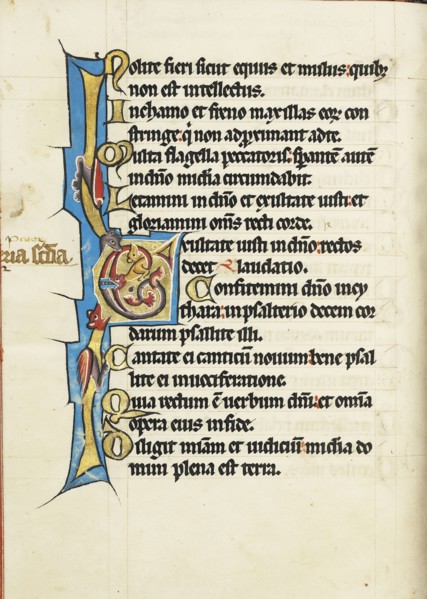 Nolite fieri sicut equus et mulus: quib;
non est intellectus.
In chamo et freno maxillas eor con
stringe: q̇ non adproximant ad te.
Multa flagella peccatoris: sperantē autē
in dn̄o mīcīa circumdabit.
Letamini in dn̄o et exultate iusti: et
gloriamini om̄s recti corde.
Exultate iusti in dn̄o: rectos
decet laudatio.
Confitemini dn̄o in cy
thara: in psalterio decem cor
darum psallite illi.
Cantate ei canticū novum: bene psal
lite ei in vociferatione.
Quia rectum ē verbum dn̄i: et om̄ia
opera eius in fide.
Diligit mīam et iudiciū: mīcīa do
mini plena est terra.
ria scd̄a